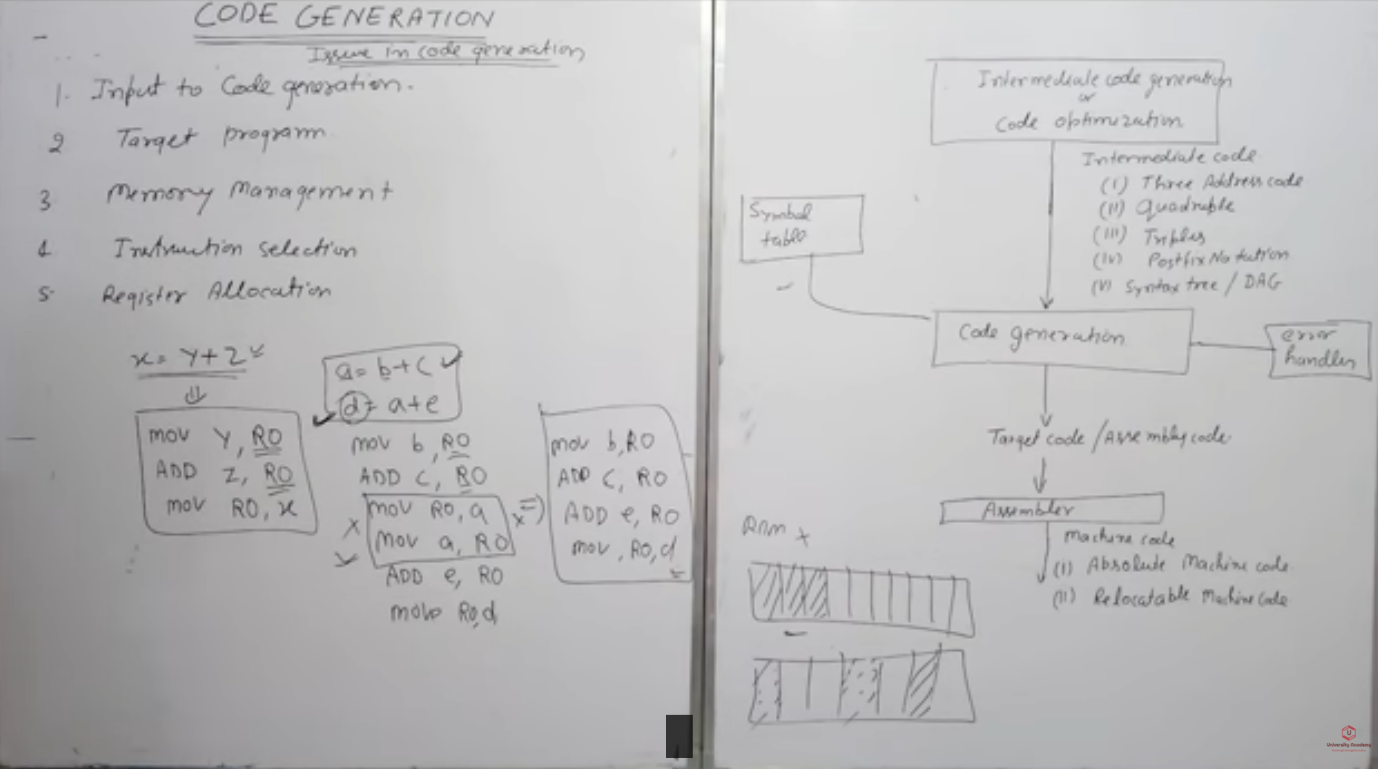 CODE GENERATION
Issue in code generation
1. Input to Code generation.
2 Target program
3 Memory Management
4. Instruction selection
5. Register Allocation
x = y + z
mov y, R0
ADD z, R0
mov R0, x
a = b + c
d = a + e
mov b, R0
ADD c, R0
mov R0, a
mov a, R0
ADD e, R0
move R0, d
mov b, R0
ADD c, R0
ADD e, R0
mov, R0, d
Intermediate code generation
or
Code optimization
Intermediate code
(i) Three Address code
(ii) Quadruple
(iii) Triples
(iv) Postfix Notation
(v) Syntax tree / DAG
Symbol
table
Code generation
error
handler
Target code / Assembly code
Assembler
Machine code
(i) Absolute Machine code
(ii) Relocatable Machine Code
RAM
University Academy